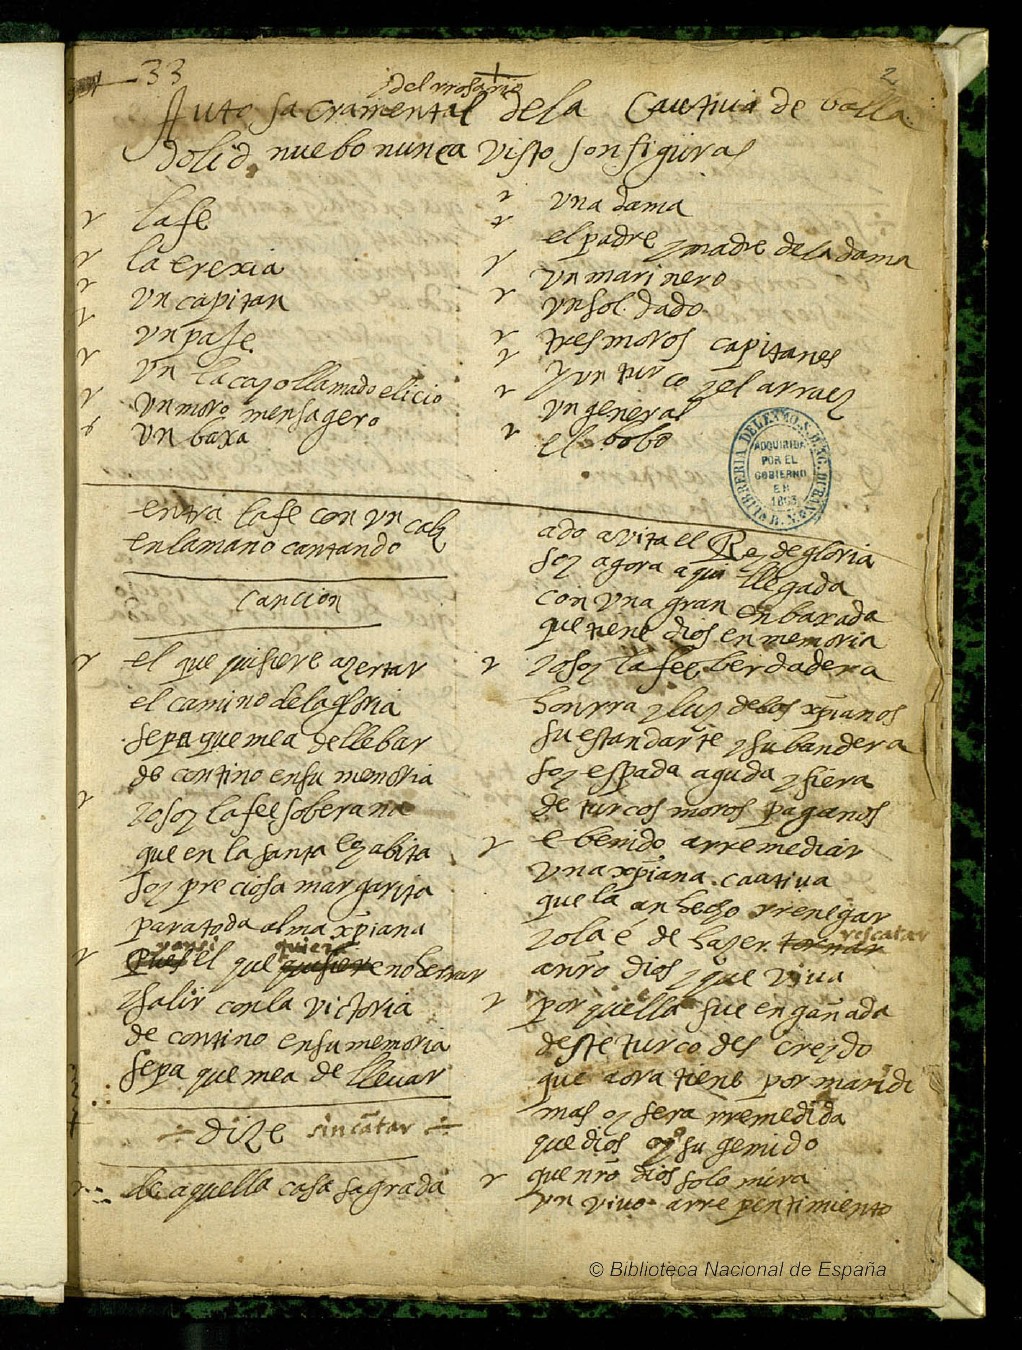 33
2
del rrosario
Auto sacramental de la Cautiua de balla
dolid nuebo nunca visto son figuras
la fe
la erexia
un capitan
un paje
un lacayo llamado elicio
un moro mensagero
un baxa
una dama
el padre y madre de la dama
un marinero
un soldado
tres moros capitanes
y un turco y el arraez
un general
el bobo
LIBRERIA DEL EXMO. S. D. AG. DURAN
B. N.
ADQUIRIDA
POR EL
GOBIERNO
EN
1863
entra la fe con un caliz
en la mano cantando
cancion
el que quisiere azertar
el camino de la gloria
sepa que mea de llebar
de contino en su memoria
yo soy la fee soberana
que en la santa ley abita
soy preciosa margarita
para toda alma xp̃iana
Pues el que quisiere no herrar
quiere
y salir con la victoria
de contino en su memoria
sepa que mea de lleuar
dize sin cãtar
de aquella casa sagrada
ado auita el Rey de gloria
soy agora aqui llegada
con una gran enbaxada
que tiene dios en memoria
yo soy la fee berdadera
honrra y luz de los xp̃ianos
su estandarte y su bandera
soy espada aguda y fiera
de turcos moros paganos
e benido arremediar
una xp̃iana cautiua
que la an hecho rrenegar
yo la e de hazer tornar
rescatar
a nr̃o dios y que viua
por quella fue engañada
deste turco descreydo
que aora tiene por marido
mas oy sera rremedida
que dios oyo su gemido
que nr̃o dios solo mira
un viuo arrepentimiento
© Biblioteca Nacional de España